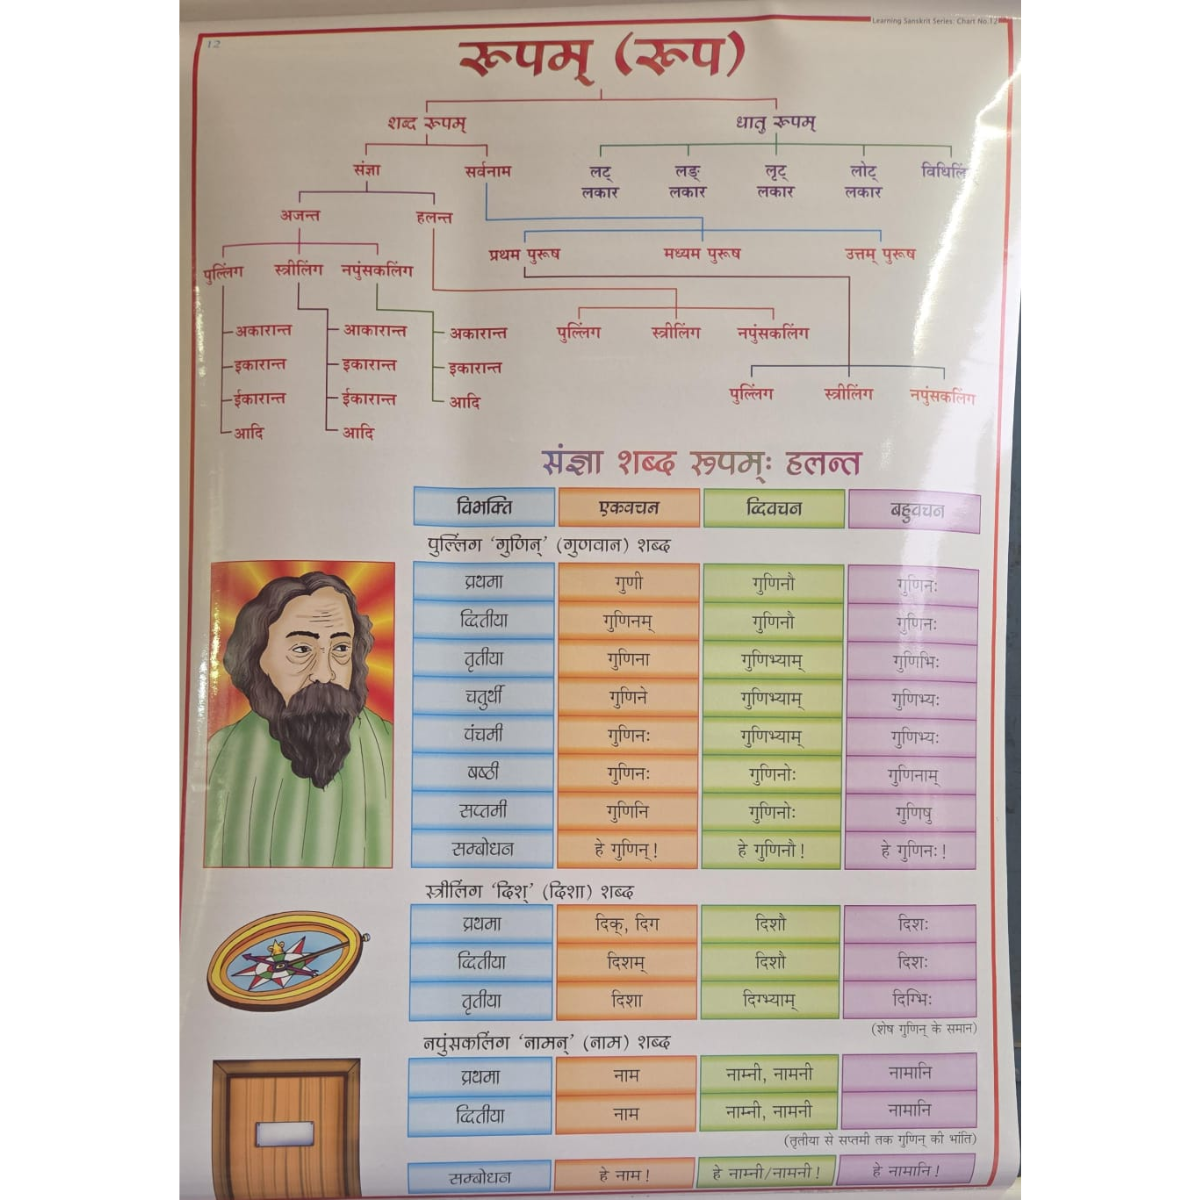 Learning Sanskrit Series: Chart No.12
12
रूपम् (रूप)
शब्द रूपम् धातु रूपम्
संज्ञा सर्वनाम लट् लकार लङ् लकार लृट् लकार लोट् लकार विधिलिं
अजन्त हलन्त
प्रथम पुरूष मध्यम पुरूष उत्तम् पुरूष
पुल्लिंग स्त्रीलिंग नपुंसकलिंग
अकारान्त आकारान्त अकारान्त पुल्लिंग स्त्रीलिंग नपुंसकलिंग
इकारान्त इकारान्त इकारान्त
ईकारान्त ईकारान्त आदि पुल्लिंग स्त्रीलिंग नपुंसकलिंग
आदि आदि
संज्ञा शब्द रूपम्ः हलन्त
विभक्ति एकवचन द्विवचन बहुवचन
पुल्लिंग ‘गुणिन्’ (गुणवान) शब्द
प्रथमा गुणी गुणिनौ गुणिनः
द्वितीया गुणिनम् गुणिनौ गुणिनः
तृतीया गुणिना गुणिभ्याम् गुणिभिः
चतुर्थी गुणिने गुणिभ्याम् गुणिभ्यः
पंचमी गुणिनः गुणिभ्याम् गुणिभ्यः
षष्ठी गुणिनः गुणिनोः गुणिनाम्
सप्तमी गुणिनि गुणिनोः गुणिषु
सम्बोधन हे गुणिन्! हे गुणिनौ! हे गुणिनः!
स्त्रीलिंग ‘दिश्’ (दिशा) शब्द
प्रथमा दिक्, दिग दिशौ दिशः
द्वितीया दिशम् दिशौ दिशः
तृतीया दिशा दिग्भ्याम् दिग्भिः
(शेष गुणिन् के समान)
नपुंसकलिंग ‘नामन्’ (नाम) शब्द
प्रथमा नाम नाम्नी, नामनी नामानि
द्वितीया नाम नाम्नी, नामनी नामानि
(तृतीया से सप्तमी तक गुणिन् की भांति)
सम्बोधन हे नाम! हे नाम्नी/नामनी! हे नामानि!